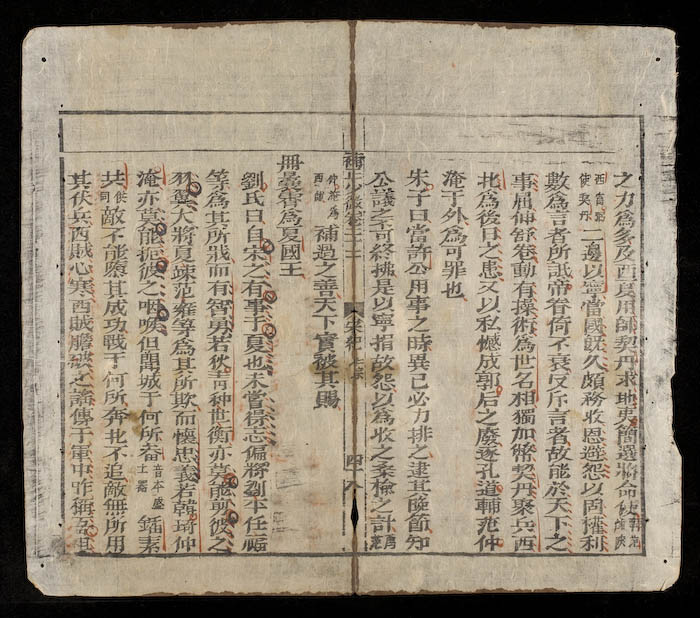 之力爲多及西夏用師契丹求地夷簡選將命使
二邊以寧當國旣久頗務收恩避怨以固權利
數爲言者所詆帝眷倚不衰反斥言者故能於天下之
事屈伸舒卷動有操術爲世名相獨加脩契丹聚兵西
北爲後日之患又以私憾成郭后之廢逐孔道輔范仲
淹于外爲可罪也
朱子曰當許公用事之時異己必力排之逮其晚節知
公議之不可終拂是以寧捐故怨以爲收之桑榆之計
補過之善天下實被其賜
冊曩霄爲夏國王
劉氏曰自宋之有事于夏也未嘗得志偏將劉平任福
等爲其所戕而有智勇若狄青种世衡亦莫能前彼之
羽翼大將夏竦范雍等爲其所欺而懷忠義若韓琦仲
淹亦莫能扼彼之咽喉但聞城于何所畚鍤素
共敵不能廢其成功戰于何所奔北不追敵無所用
其伏兵西賊心寒西賊膽破之謠傳于軍中昨